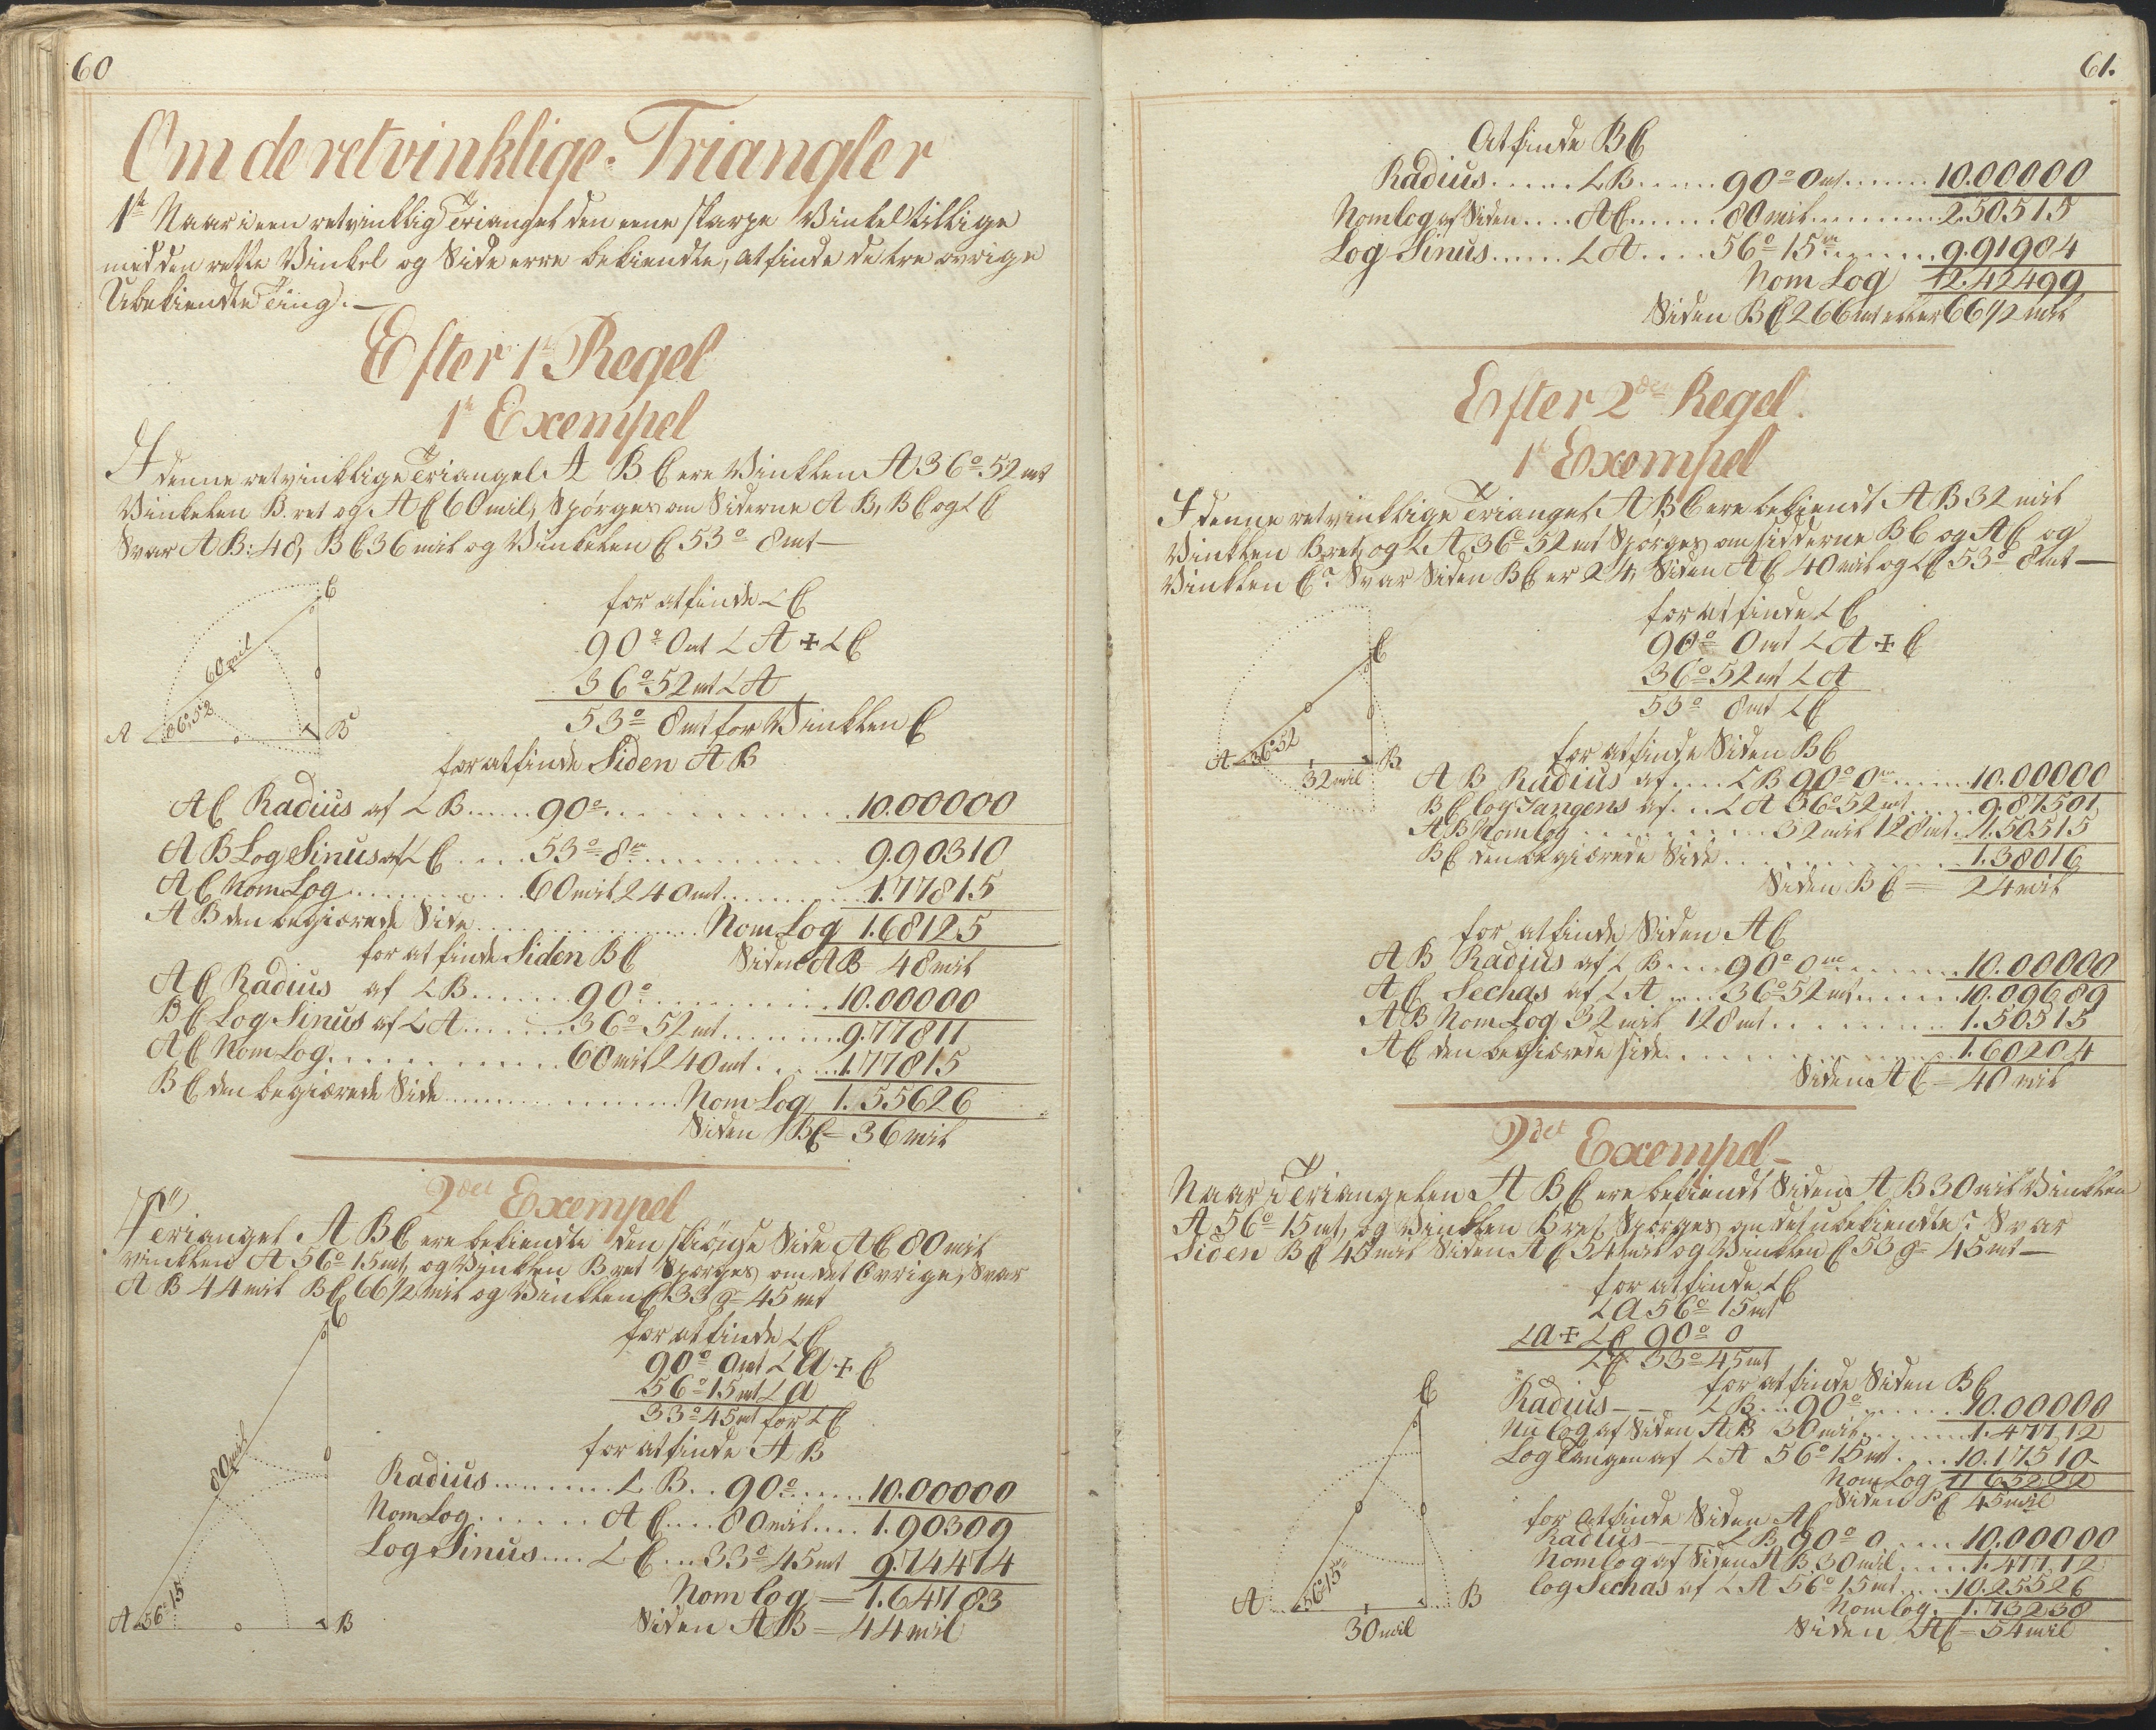 60
Om de retvinklige Triangler
1te Naar i een retvinklig Triangel den eene skarpe Vinkel tillige
med den rette Vinkel og Side erre bekiendte, at finde de tre øvrige
Ubekiendte Ting.—
Efter 1te Regel
1te Exempel
I denne retvinklige Triangel A B C ere Vinklen A 36° 52 mt
Vinkelen B. ret og AC 60 mil, Spørges om Siderne A B, B C og ∠ C
Svar A B: 48, B C 36 mil og Vinkelen C 53° 8 mt—
C
60 mil
36° 52
A
B
for at finde ∠ C
90° 0 mt ∠ A + ∠ C
36° 52 mt ∠ A
53° 8 mt for Vinklen C
for at finde Siden A B
A C Radius af ∠ B......90°............10.00000
A B Log Sinus af ∠ C....53° 8 m............9.90310
A C Nom Log............60 mil 240 mt............1.77815
A B den begiærede Side............Nom Log 1.68125
for at finde Siden B C Siden A B = 48 mil
A C Radius af ∠ B......90°............10.00000
B C Log Sinus af ∠ A......36° 52 mt......9.77811
A C Nom Log............60 mil 240 mt......1.77815
B C den begiærede Side............Nom Log 1.55626
Siden B C = 36 mil
2det Exempel
I Triangel A B C ere bekiendte den skiønse Side A C 80 mil
vinklen A 56° 15 mt, og Vinklen B ret Spørges om det Øvrige, Svar
A B 44 mil B C 66 1/2 mil og Vinklen C 33 g 45 mt
C
80 mil
A 56° 15
B
for at finde ∠ C
90° 0 mt ∠ a + C
56° 15 mt ∠ a
33° 45 mt for ∠ C
for at finde A B
Radius.........∠ B...90°......10.00000
Nom Log.......A C....80 mil....1.90309
Log Sinus....∠ C...33° 45 mt 9.74474
Nom log = 1.64783
Siden A B = 44 mil
61.
At finde B C
Radius......∠ B......90° 0 mt......10.00000
Nom log af Siden....A C......80 mil.........2.50515
Log Sinus......∠ A....56° 15 m......9.91984
Nom Log 12.42499
Siden B C 266 mt eller 66 1/2 mil
Efter 2den Regel.
1te Exempel
I denne retvinklige Triangel A B C ere bekiendt A B 32 mil
Vinklen B ret, og ∠ A 36° 52 mt Spørges om sidderne B C og A C og
Vinklen C? Svar Siden B C er 24, Siden A C 40 mil og ∠ C 53° 8 mt—
C
A 36° 52
B
32 mil
for at finde ∠ C
90° 0 mt ∠ A + C
36° 52 mt ∠ A
53° 8 mt ∠ C
for at finde Siden B C
A B Radius af....∠ B 90° 0 m......10.00000
B C log Tangens af...∠ A 36° 52 mt.....9.87501
A B Nom log............32 mil 128 mt..1.50515
B C den begiærede Side............1.38016
Siden B C = 24 mil
for at finde Siden A C
A B Radius af ∠ B....90° 0 m.........10.00000
A C Sechas af ∠ A....36° 52 mt......10.09689
A B Nom Log 32 mil 128 mt.........1.50515
A C den begiærede side............1.60204
Siden A C = 40 mil
2det Exempel—
Naar i Triangelen A B C ere bekiendt Siden A B 30 mil Vinklen
A 56° 15 mt, og Vinklen B ret, Spørges om det ubekiendte? Svar
Siden B C 45 mil Siden A C 54 mil og Vinklen C 53 g 45 mt—
for at finde ∠ C
∠ a 56° 15 mt
∠ a + ∠ C 90° 0
∠ C 33° 45 mt
for at finde Siden B C
Radius—— ∠ B...90°......10.00000
Nu log af Siden A B 30 mil.........1.47712
Log Tangen af ∠ A 56° 15 mt....10.17510
Nom Log 11.65222
Siden B C 45 mil
for at finde Siden A C
Radius—— ∠ B 90° 0....10.00000
Nom log af Siden A B 30 mil.....1.47712
log Sechas af ∠ A 56° 15 mt....10.25526
Nom log. 1.73238
Siden A C = 54 mil
C
56° 15 m
A
B
30 mil